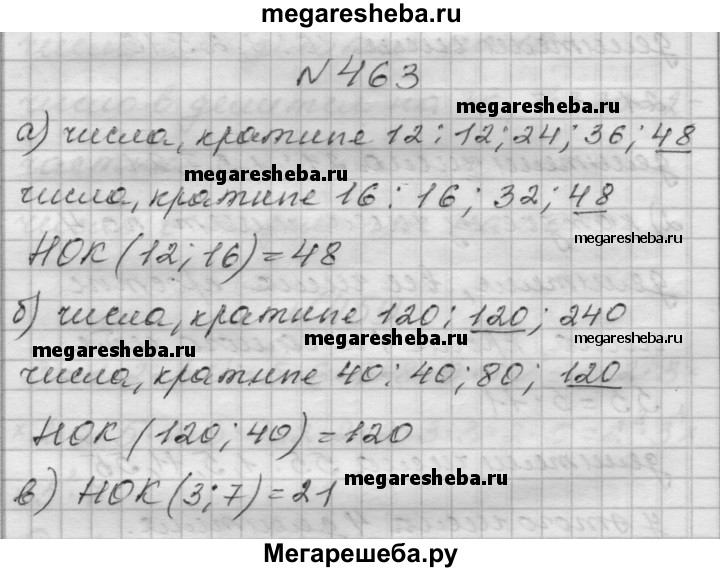 megaresheba.ru
№463
megaresheba.ru
а) числа, кратные 12: 12; 24; 36; 48
megaresheba.ru
числа, кратные 16: 16; 32; 48
megaresheba.ru
НОК (12; 16) = 48
б) числа, кратные 120: 120; 240
megaresheba.ru
megaresheba.ru
числа, кратные 40: 40; 80; 120
НОК (120; 40) = 120
megaresheba.ru
в) НОК (3; 7) = 21
Мегарешеба.ру